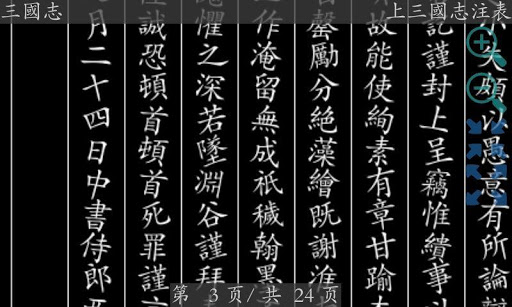 三國志
上三國志注表
失頗以愚意有所論
記謹封上呈竊惟繢事
故能使絢素有章甘踰
罄勵分絕藻繪既謝淮
之作淹留無成祇穢翰墨
愧懼之深若墜淵谷謹拜
誠恐頓首頓首死罪謹
月二十四日中書侍郎
第 3 页/共 24 页